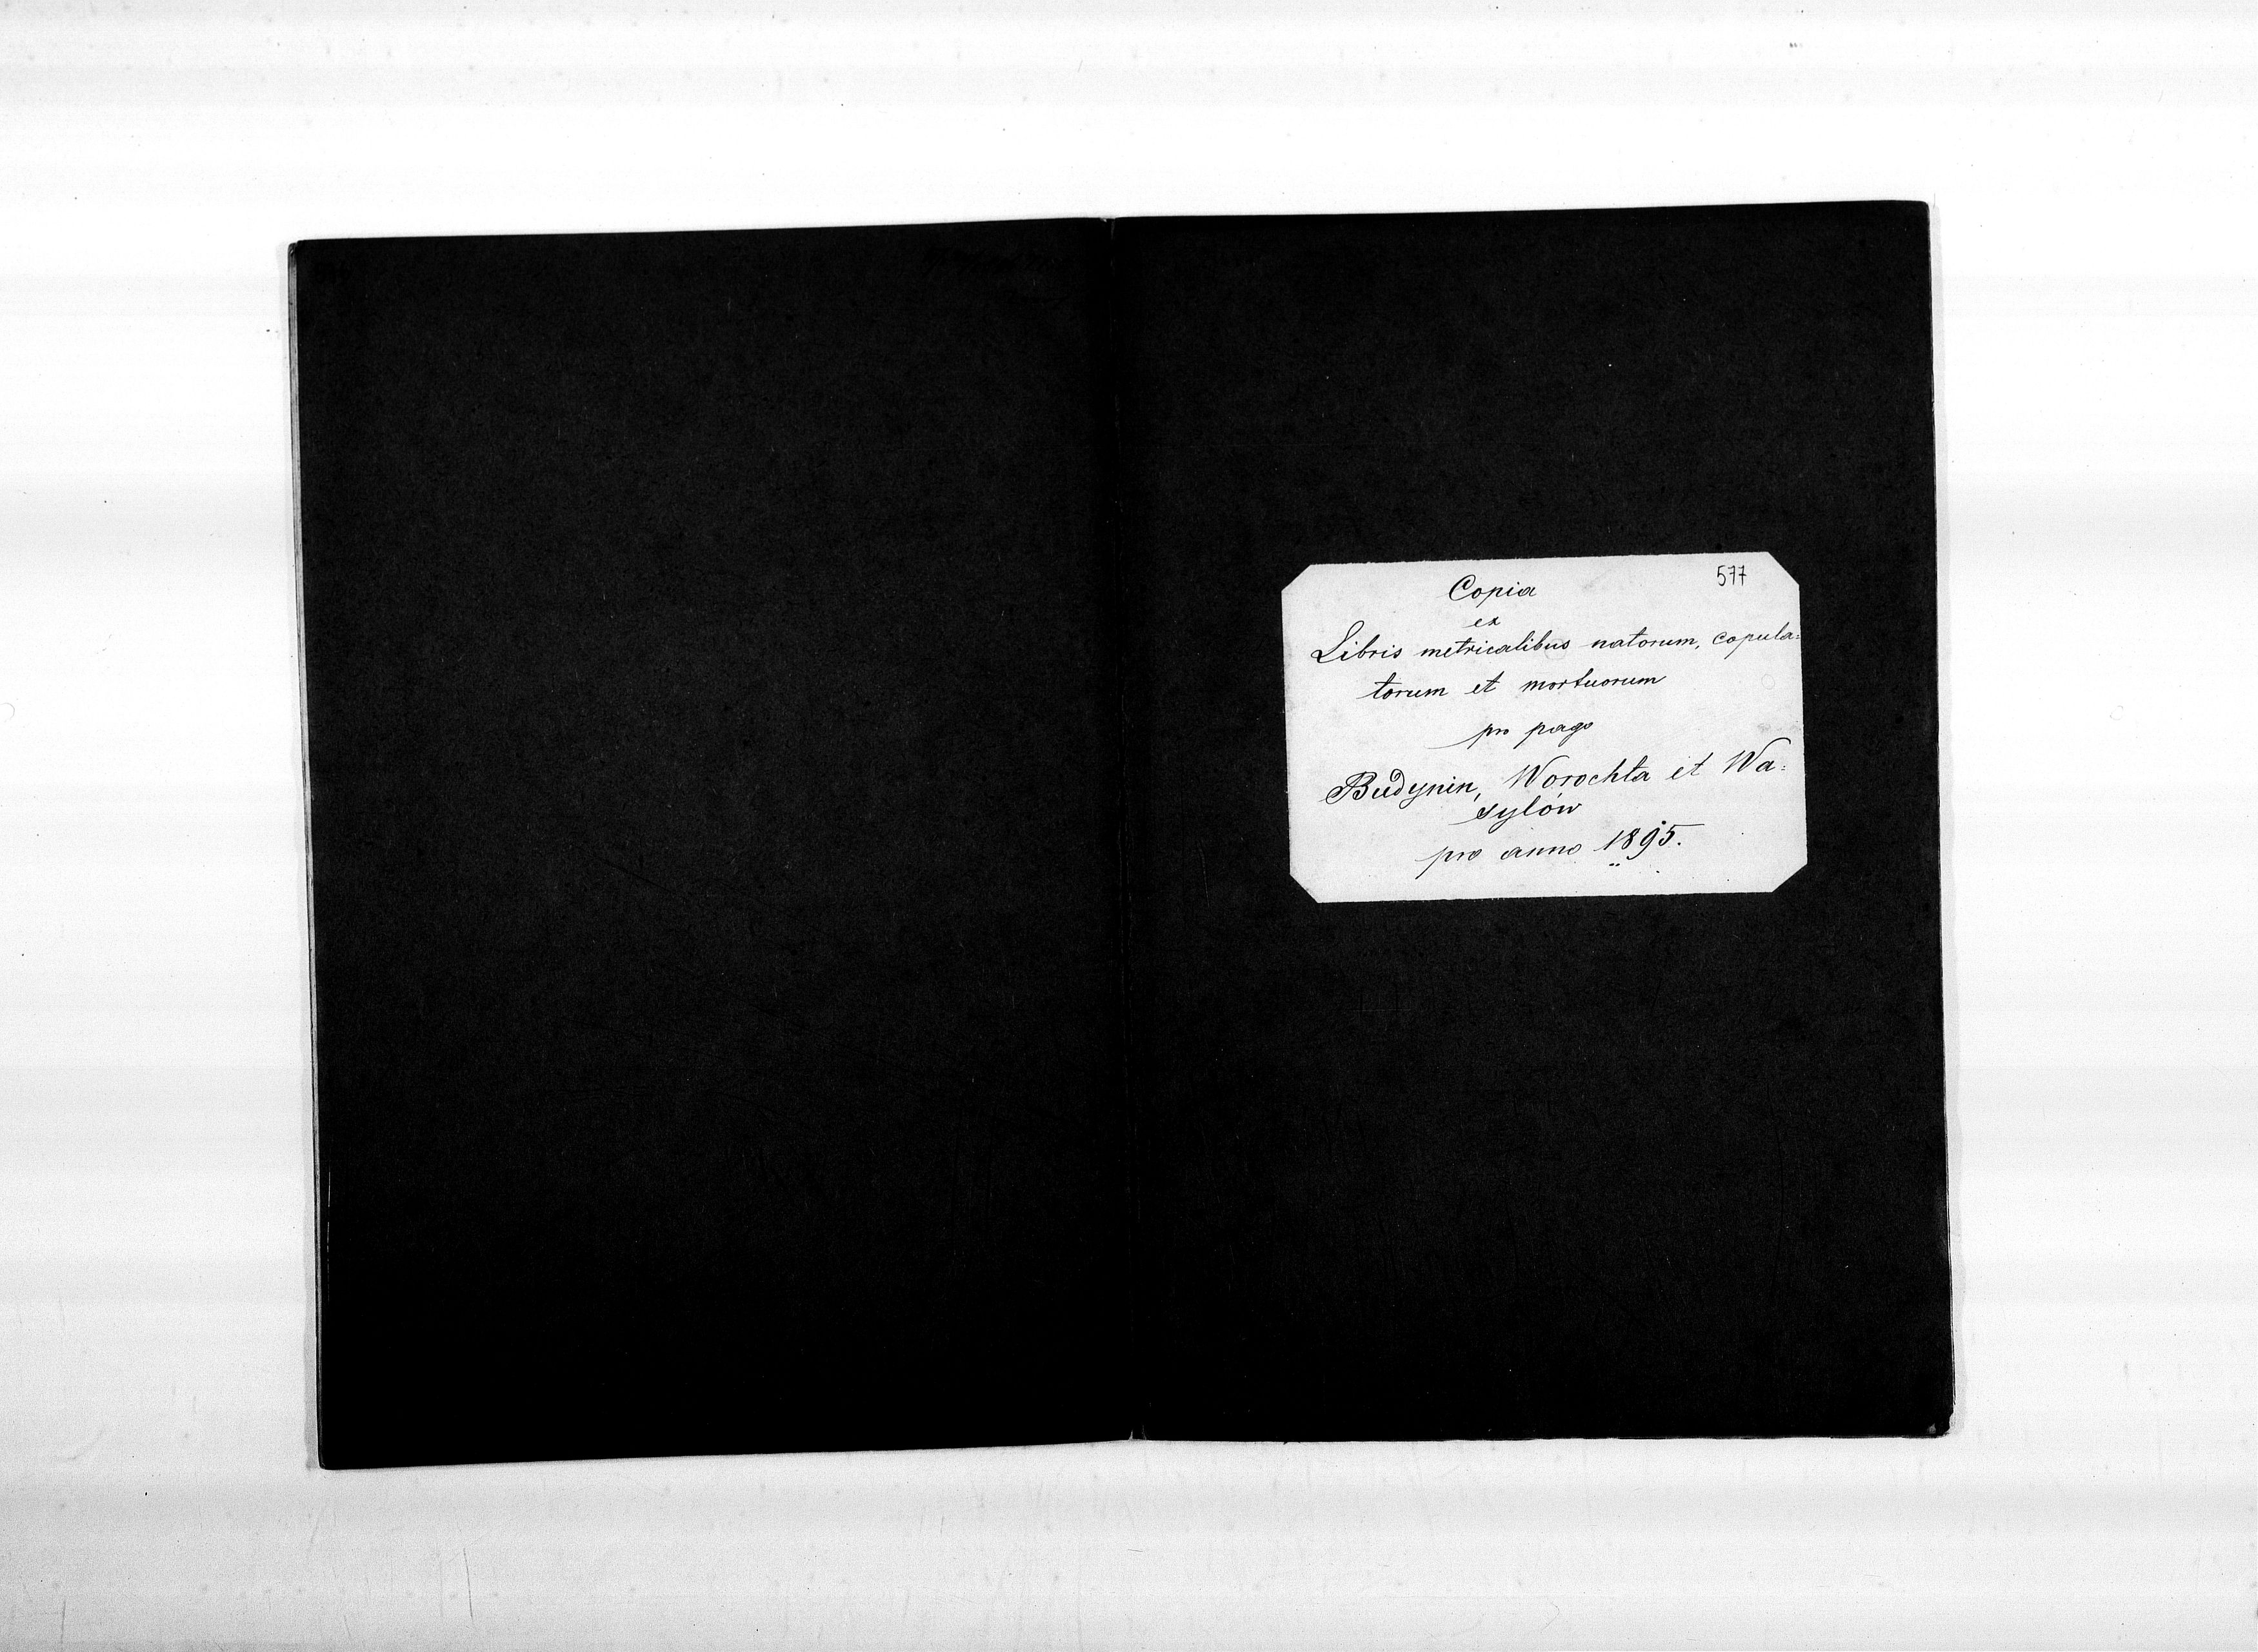 577
Copia
ex
Libris metricalibus natorum, copula=
torum et mortuorum
pro pago
Budynin, Worochta et Wa=
sylów
pro anno 1895.